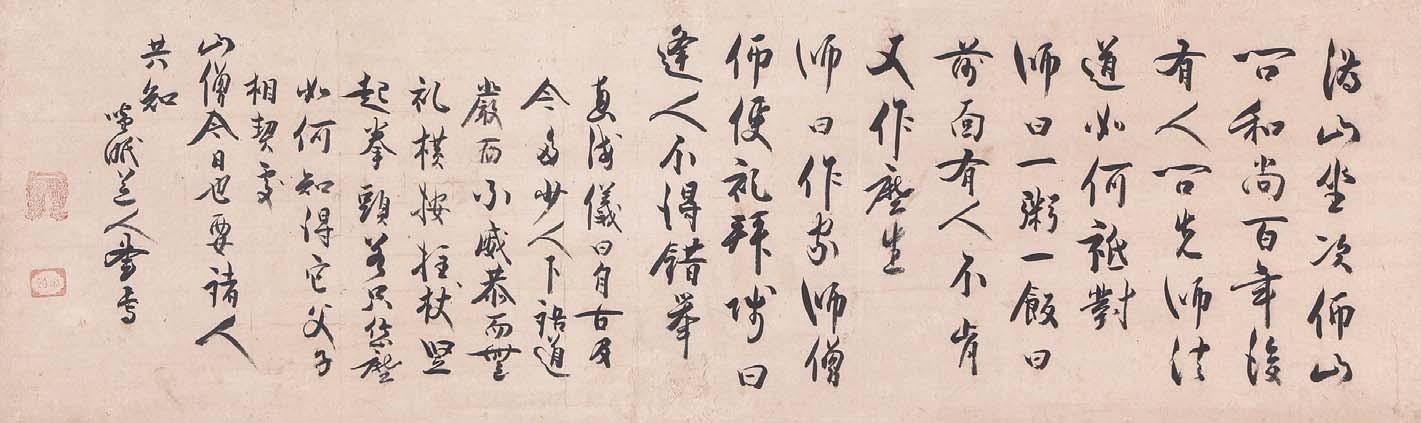 溈山坐次仰山
問和尚百年後
有人問先師法
道如何祗對
師曰一粥一飯曰
前面有人不肯
又作麼生
師曰作家師僧
仰便礼拜師曰
逢人不得錯舉
真淨儀曰自古及
今多少人下語道
嚴而不威恭而無
礼橫按拄杖竪
起拳頭若只恁麼
如何知得它父子
相契處
山僧今日也要諸人
共知
道人